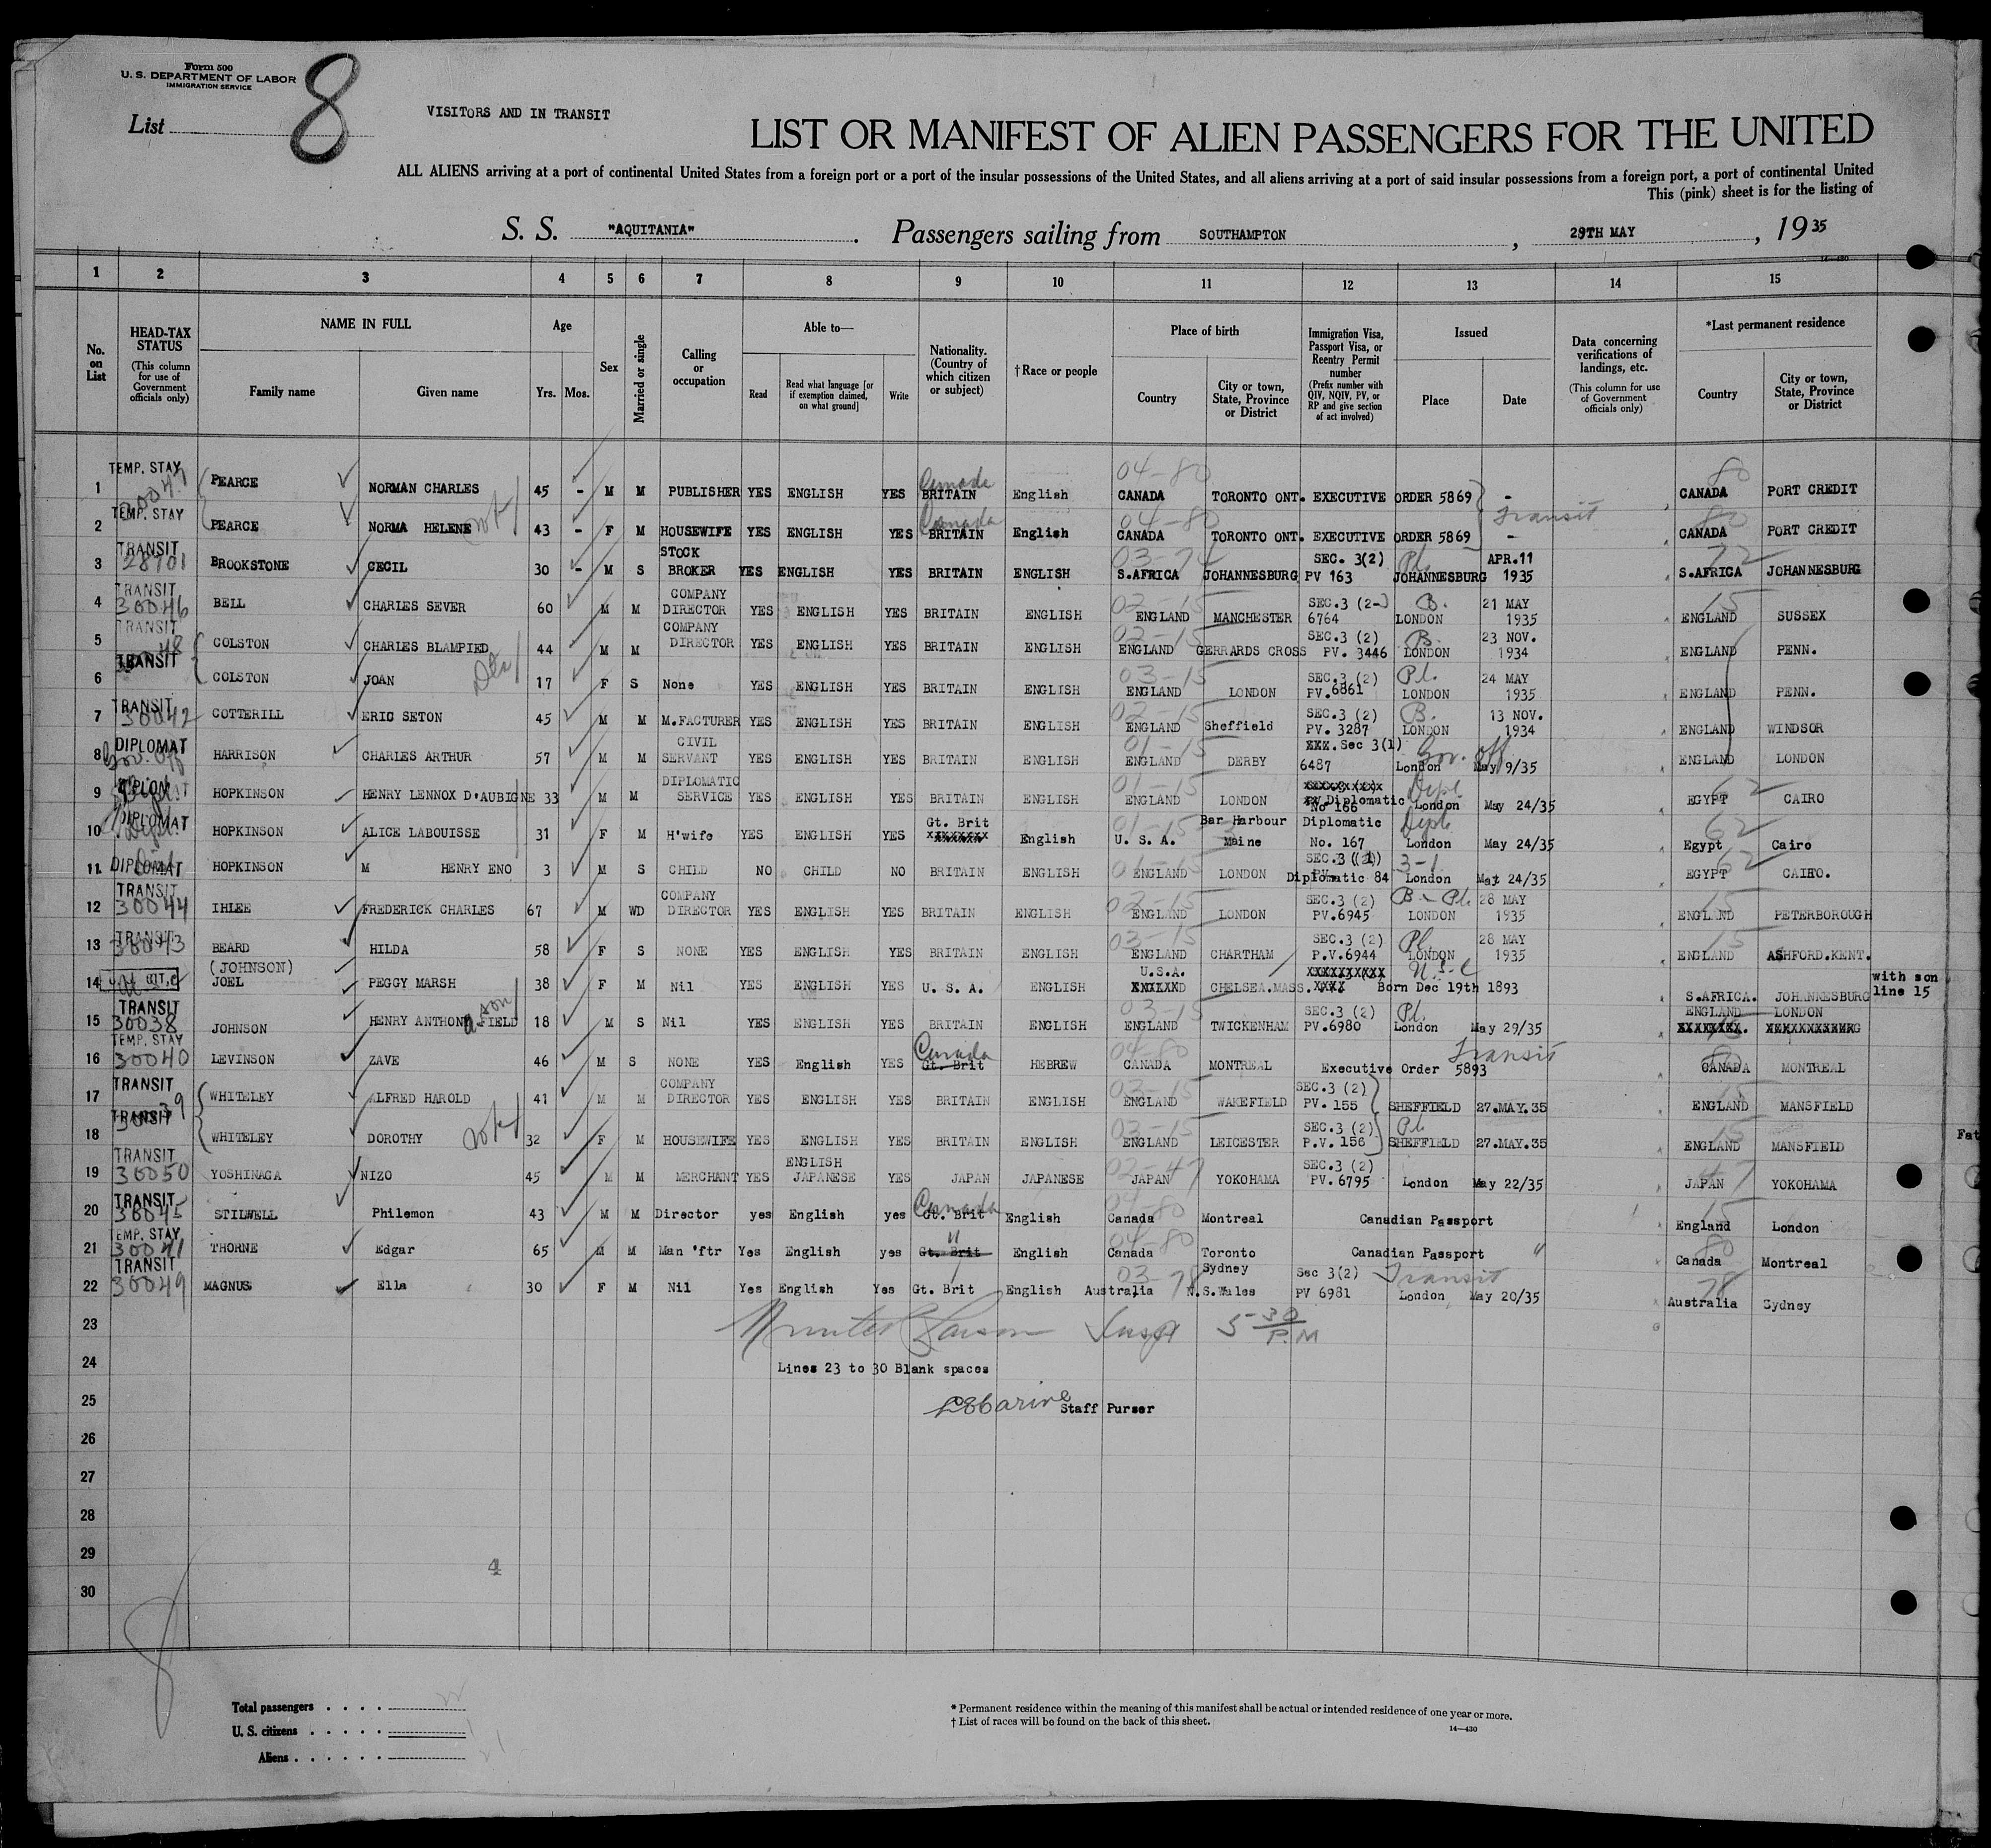 Form 500
U. S. DEPARTMENT OF LABOR
IMMIGRATION SERVICE
List 8
VISITORS AND IN TRANSIT
LIST OR MANIFEST OF ALIEN PASSENGERS FOR THE UNITED
ALL ALIENS arriving at a port of continental United States from a foreign port or a port of the insular possessions of the United States, and all aliens arriving at a port of said insular possessions from a foreign port, a port of continental United
This (pink) sheet is for the listing of
S. S. "AQUITANIA". Passengers sailing from SOUTHAMPTON, 29TH MAY, 1935
14—430
1 2 3 4 5 6 7 8 9 10 11 12 13 14 15
No. on List
HEAD-TAX STATUS (This column for use of Government officials only)
NAME IN FULL Family name Given name
Age Yrs. Mos.
Sex
Married or single
Calling or occupation
Able to— Read Read what language [or if exemption claimed, on what ground] Write
Nationality. (Country of which citizen or subject)
†Race or people
Place of birth Country City or town, State, Province or District
Immigration Visa, Passport Visa, or Reentry Permit number (Prefix number with QIV, NQIV, PV, or RP and give section of act involved)
Issued Place Date
Data concerning verifications of landings, etc. (This column for use of Government officials only)
*Last permanent residence Country City or town, State, Province or District
1 TEMP. STAY 30047 PEARCE NORMAN CHARLES 45 - M M PUBLISHER YES ENGLISH YES Canada BRITAIN English 04-80 CANADA TORONTO ONT. EXECUTIVE ORDER 5869 - 80 CANADA PORT CREDIT
2 TEMP. STAY PEARCE NORMA HELENE 43 - F M HOUSEWIFE YES ENGLISH YES Canada BRITAIN English 04-80 CANADA TORONTO ONT. EXECUTIVE ORDER 5869 - Transit 80 CANADA PORT CREDIT
3 TRANSIT 28701 BROOKSTONE CECIL 30 - M S STOCK BROKER YES ENGLISH YES BRITAIN ENGLISH 03-72 S.AFRICA JOHANNESBURG SEC. 3(2) PV 163 Pl. JOHANNESBURG APR.11 1935 72 S.AFRICA JOHANNESBURG
4 TRANSIT 30046 BELL CHARLES SEVER 60 M M COMPANY DIRECTOR YES ENGLISH YES BRITAIN ENGLISH 02-15 ENGLAND MANCHESTER SEC.3 (2-) 6764 B. LONDON 21 MAY 1935 15 ENGLAND SUSSEX
5 TRANSIT COLSTON CHARLES BLAMPIED 44 M M COMPANY DIRECTOR YES ENGLISH YES BRITAIN ENGLISH 02-15 ENGLAND GERRARDS CROSS SEC.3 (2) PV. 3446 B. LONDON 23 NOV. 1934 ENGLAND PENN.
6 TRANSIT COLSTON JOAN 17 F S None YES ENGLISH YES BRITAIN ENGLISH 03-15 ENGLAND LONDON SEC.3 (2) PV.6861 Pl. LONDON 24 MAY 1935 ENGLAND PENN.
7 TRANSIT 30042 COTTERILL ERIC SETON 45 M M M.FACTURER YES ENGLISH YES BRITAIN ENGLISH 02-15 ENGLAND Sheffield SEC.3 (2) PV. 3287 B. LONDON 13 NOV. 1934 ENGLAND WINDSOR
8 DIPLOMAT Gov. Off HARRISON CHARLES ARTHUR 57 M M CIVIL SERVANT YES ENGLISH YES BRITAIN ENGLISH 01-15 ENGLAND DERBY XXX. Sec 3(1) 6487 Gov. Off London May 9/35 ENGLAND LONDON
9 HOPKINSON HENRY LENNOX D'AUBIGNE 33 M M DIPLOMATIC SERVICE YES ENGLISH YES BRITAIN ENGLISH 01-15 ENGLAND LONDON Diplomatic No 166 Dipl London May 24/35 62 EGYPT CAIRO
10 DIPLOMAT Dipl HOPKINSON ALICE LABOUISSE 31 F M H'wife YES ENGLISH YES Gt. Brit XXXXXXX English 01-15 U. S. A. Bar Harbour Maine Diplomatic No. 167 Dipl London May 24/35 62 Egypt Cairo
11 DIPLOMAT HOPKINSON M HENRY ENO 3 M S CHILD NO CHILD NO BRITAIN ENGLISH 01-15 ENGLAND LONDON SEC.3 (1) Diplomatic 84 3-1 London May 24/35 62 EGYPT CAIRO.
12 TRANSIT 30044 IHLEE FREDERICK CHARLES 67 M WD COMPANY DIRECTOR YES ENGLISH YES BRITAIN ENGLISH 02-15 ENGLAND LONDON SEC.3 (2) PV.6945 B - Pl. LONDON 28 MAY 1935 15 ENGLAND PETERBOROUGH
13 TRANSIT 30043 BEARD HILDA 58 F S NONE YES ENGLISH YES BRITAIN ENGLISH 03-15 ENGLAND CHARTHAM SEC.3 (2) P.V.6944 Pl. LONDON 28 MAY 1935 15 ENGLAND ASHFORD.KENT.
14 (JOHNSON) JOEL PEGGY MARSH 38 F M Nil YES ENGLISH YES U. S. A. ENGLISH U.S.A. CHELSEA.MASS. XXXXXXXXXX XXXX U.S.C Born Dec 19th 1893 S.AFRICA. JOHANNESBURG with son line 15
15 TRANSIT 30038 JOHNSON HENRY ANTHONY FIELD a. son 18 M S Nil YES ENGLISH YES BRITAIN ENGLISH 03-15 ENGLAND TWICKENHAM SEC.3 (2) PV.6980 Pl. London May 29/35 ENGLAND LONDON
16 TEMP. STAY 30040 LEVINSON ZAVE 46 M S NONE YES English YES Canada Gt. Brit HEBREW 04-80 CANADA MONTREAL Executive Order 5893 Transit 80 CANADA MONTREAL
17 TRANSIT WHITELEY ALFRED HAROLD 41 M M COMPANY DIRECTOR YES ENGLISH YES BRITAIN ENGLISH 03-15 ENGLAND WAKEFIELD SEC.3 (2) PV. 155 SHEFFIELD 27.MAY.35 15 ENGLAND MANSFIELD
18 TRANSIT WHITELEY DOROTHY 32 F M HOUSEWIFE YES ENGLISH YES BRITAIN ENGLISH 03-15 ENGLAND LEICESTER SEC.3 (2) P.V. 156 Pl. SHEFFIELD 27.MAY.35 15 ENGLAND MANSFIELD
19 TRANSIT 30050 YOSHINAGA NIZO 45 M M MERCHANT YES ENGLISH JAPANESE YES JAPAN JAPANESE 02-47 JAPAN YOKOHAMA SEC.3 (2) PV. 6795 London May 22/35 47 JAPAN YOKOHAMA
20 TRANSIT 30045 STILWELL Philemon 43 M M Director yes English yes Canada Gt. Brit English 04-80 Canada Montreal Canadian Passport 15 England London
21 TEMP. STAY 30041 THORNE Edgar 65 M M Man 'ftr Yes English yes " Gt. Brit English 04-80 Canada Toronto Canadian Passport " 80 Canada Montreal
22 TRANSIT 30049 MAGNUS Ella 30 F M Nil Yes English Yes Gt. Brit English 03-78 Australia Sydney N.S.Wales Sec 3(2) PV 6981 Transit London May 20/35 78 Australia Sydney
23 Insp 5 30 P.M
24 Lines 23 to 30 Blank spaces
25 Staff Purser
26
27
28
29
30
4
8
Total passengers
U. S. citizens
Aliens
* Permanent residence within the meaning of this manifest shall be actual or intended residence of one year or more.
† List of races will be found on the back of this sheet.
14—430